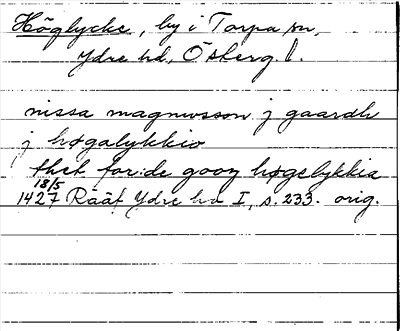 Höglycke, by i Torpa sn,
Ydre hd, Östergötl.
nissa magnusson j gaardh
j høgalykkio
thet for:de gooz høgelykkia
18/5
1427 Rääf Ydre hd I, s. 233. orig.